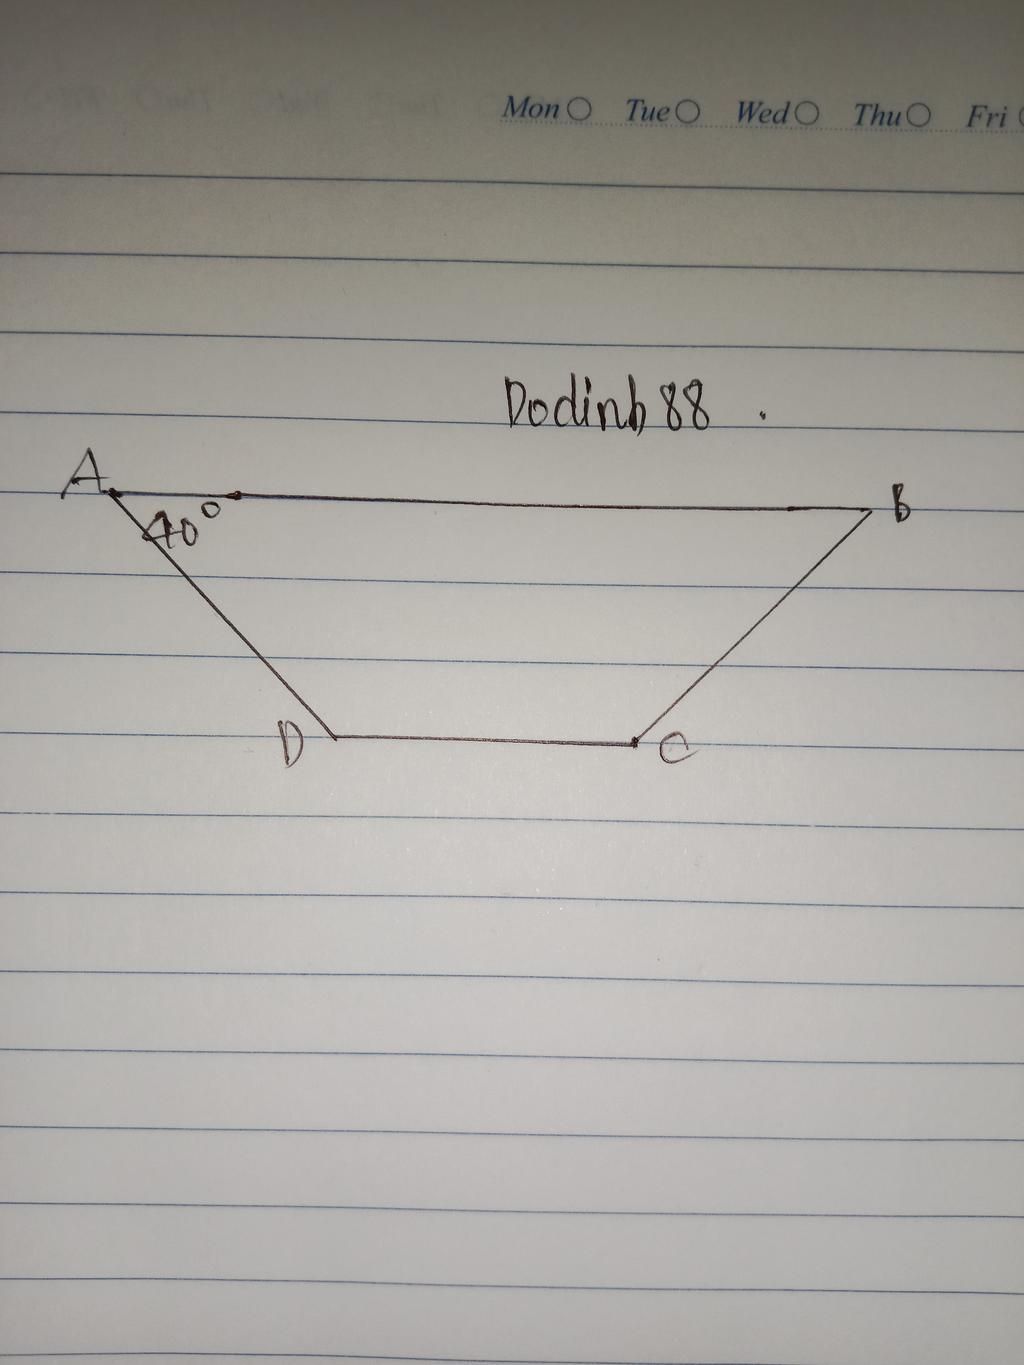 Mon Tue Wed Thu Fri
Dodinh 88 .
A
B
40°
D
C